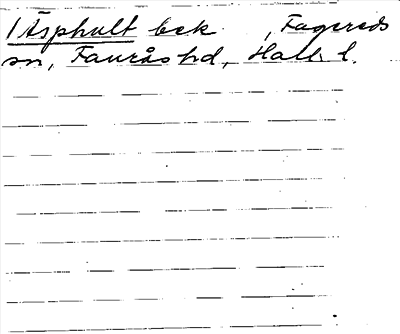 1 Äsphult bek , Fagereds
sn, Faurås hd, Hall. l.